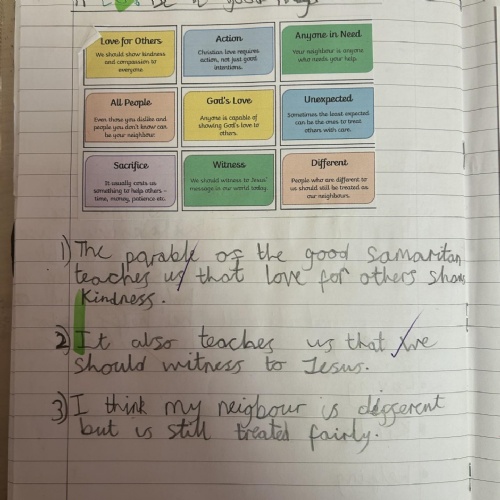 be a good
Love for Others
We should show kindness
and compassion to
everyone.
Action
Christian love requires
action, not just good
intentions.
Anyone in Need
Your neighbour is anyone
who needs your help.
All People
Even those you dislike and
people you don't know can
be your neighbour.
God's Love
Anyone is capable of
showing God's love to
others.
Unexpected
Sometimes the least expected
can be the ones to treat
others with care.
Sacrifice
It usually costs us
something to help others –
time, money, patience etc.
Witness
We should witness to Jesus'
message in our world today.
Different
People who are different to
us should still be treated as
our neighbours.
1) The parable of the good Samaritan
teaches us that love for others shows
kindness.
2) It also teaches us that we
should witness to Jesus.
3) I think my neigbour is diggerent
but is still treated fairly.